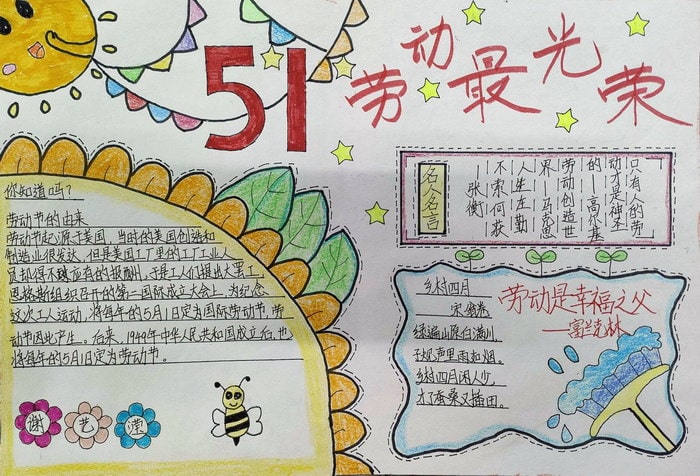 51
劳动最光荣
你知道吗？
劳动节的由来
劳动节起源于美国，当时的美国创造和
制造业很发达，但是美国工厂里的工厂工业人
员却得不到应有的报酬，于是工人们提出大罢工，
恩格斯组织召开的第二国际成立大会上，为纪念
这次工人运动，将每年的5月1日定为国际劳动节，劳
动节因此产生。后来，1949年中华人民共和国成立后，也
将每年的5月1日定为劳动节。
谢艺滢
名人名言
只有人的劳
动才是神圣
的—高尔基
劳动创造世
界—马克思
人生在勤
不索何获
—张衡
乡村四月
宋翁卷
绿遍山原白满川，
子规声里雨如烟。
乡村四月闲人少，
才了蚕桑又插田。
劳动是幸福之父
——富兰克林